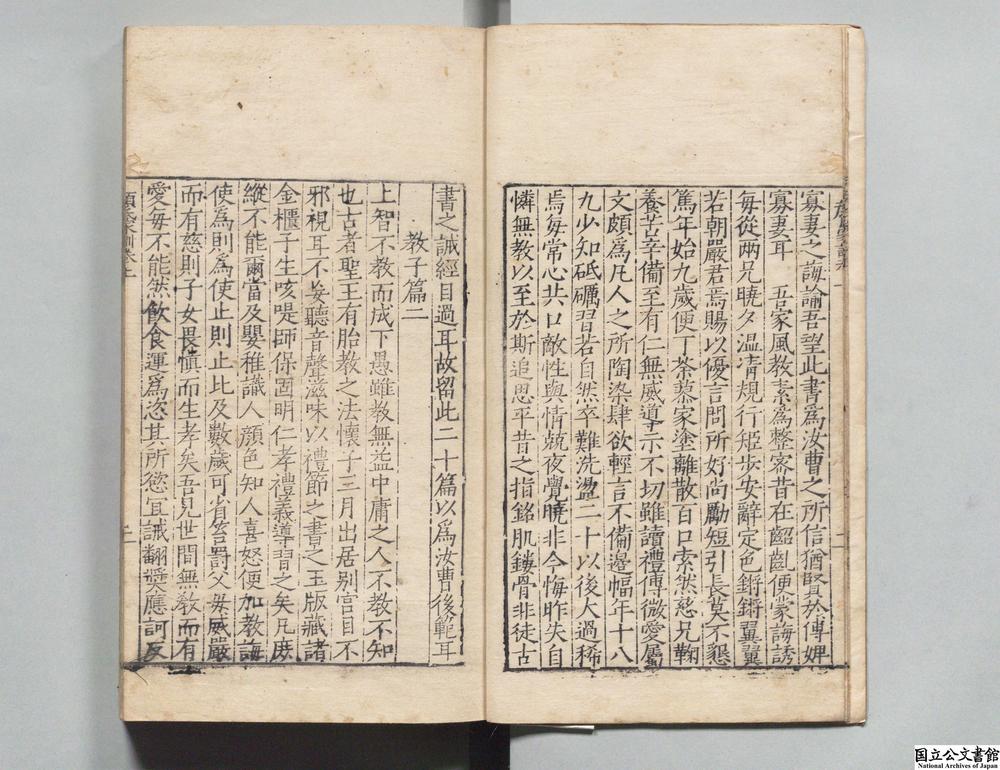 寡妻之誨諭吾望此書爲汝曹之所信猶賢於傅婢
寡妻耳　吾家風教素爲整密昔在齠齔便蒙誨誘
每從兩兄曉夕温凊規行矩歩安辭定色鏘鏘翼翼
若朝嚴君焉賜以優言問所好尚勵短引長莫不懇
篤年始九歲便丁荼蓼家塗離散百口索然慈兄鞠
養苦辛備至有仁無威導示不切雖讀禮傳微愛屬
文頗爲凡人之所陶染肆欲輕言不備邊幅年十八
九少知砥礪習若自然卒難洗盪二十以後大過稀
焉每常心共口敵性與情兢夜覺曉非今悔昨失自
憐無教以至於斯追思平昔之指銘肌鏤骨非徒古
書之誡經目過耳故留此二十篇以爲汝曹後範耳
教子篇二
上智不教而成下愚雖教無益中庸之人不教不知
也古者聖王有胎教之法懷子三月出居別宮目不
邪視耳不妄聽音聲滋味以禮節之書之玉版藏諸
金櫃子生咳㖷師保固明仁孝禮義導習之矣凡庶
縱不能爾當及嬰稚識人顔色知人喜怒便加教誨
使爲則爲使止則止比及數歲可省笞罰父母威嚴
而有慈則子女畏慎而生孝矣吾見世間無教而有
愛每不能然飲食運爲恣其所慾宜誡翻奬應訶反
二
国立公文書館
National Archives of Japan